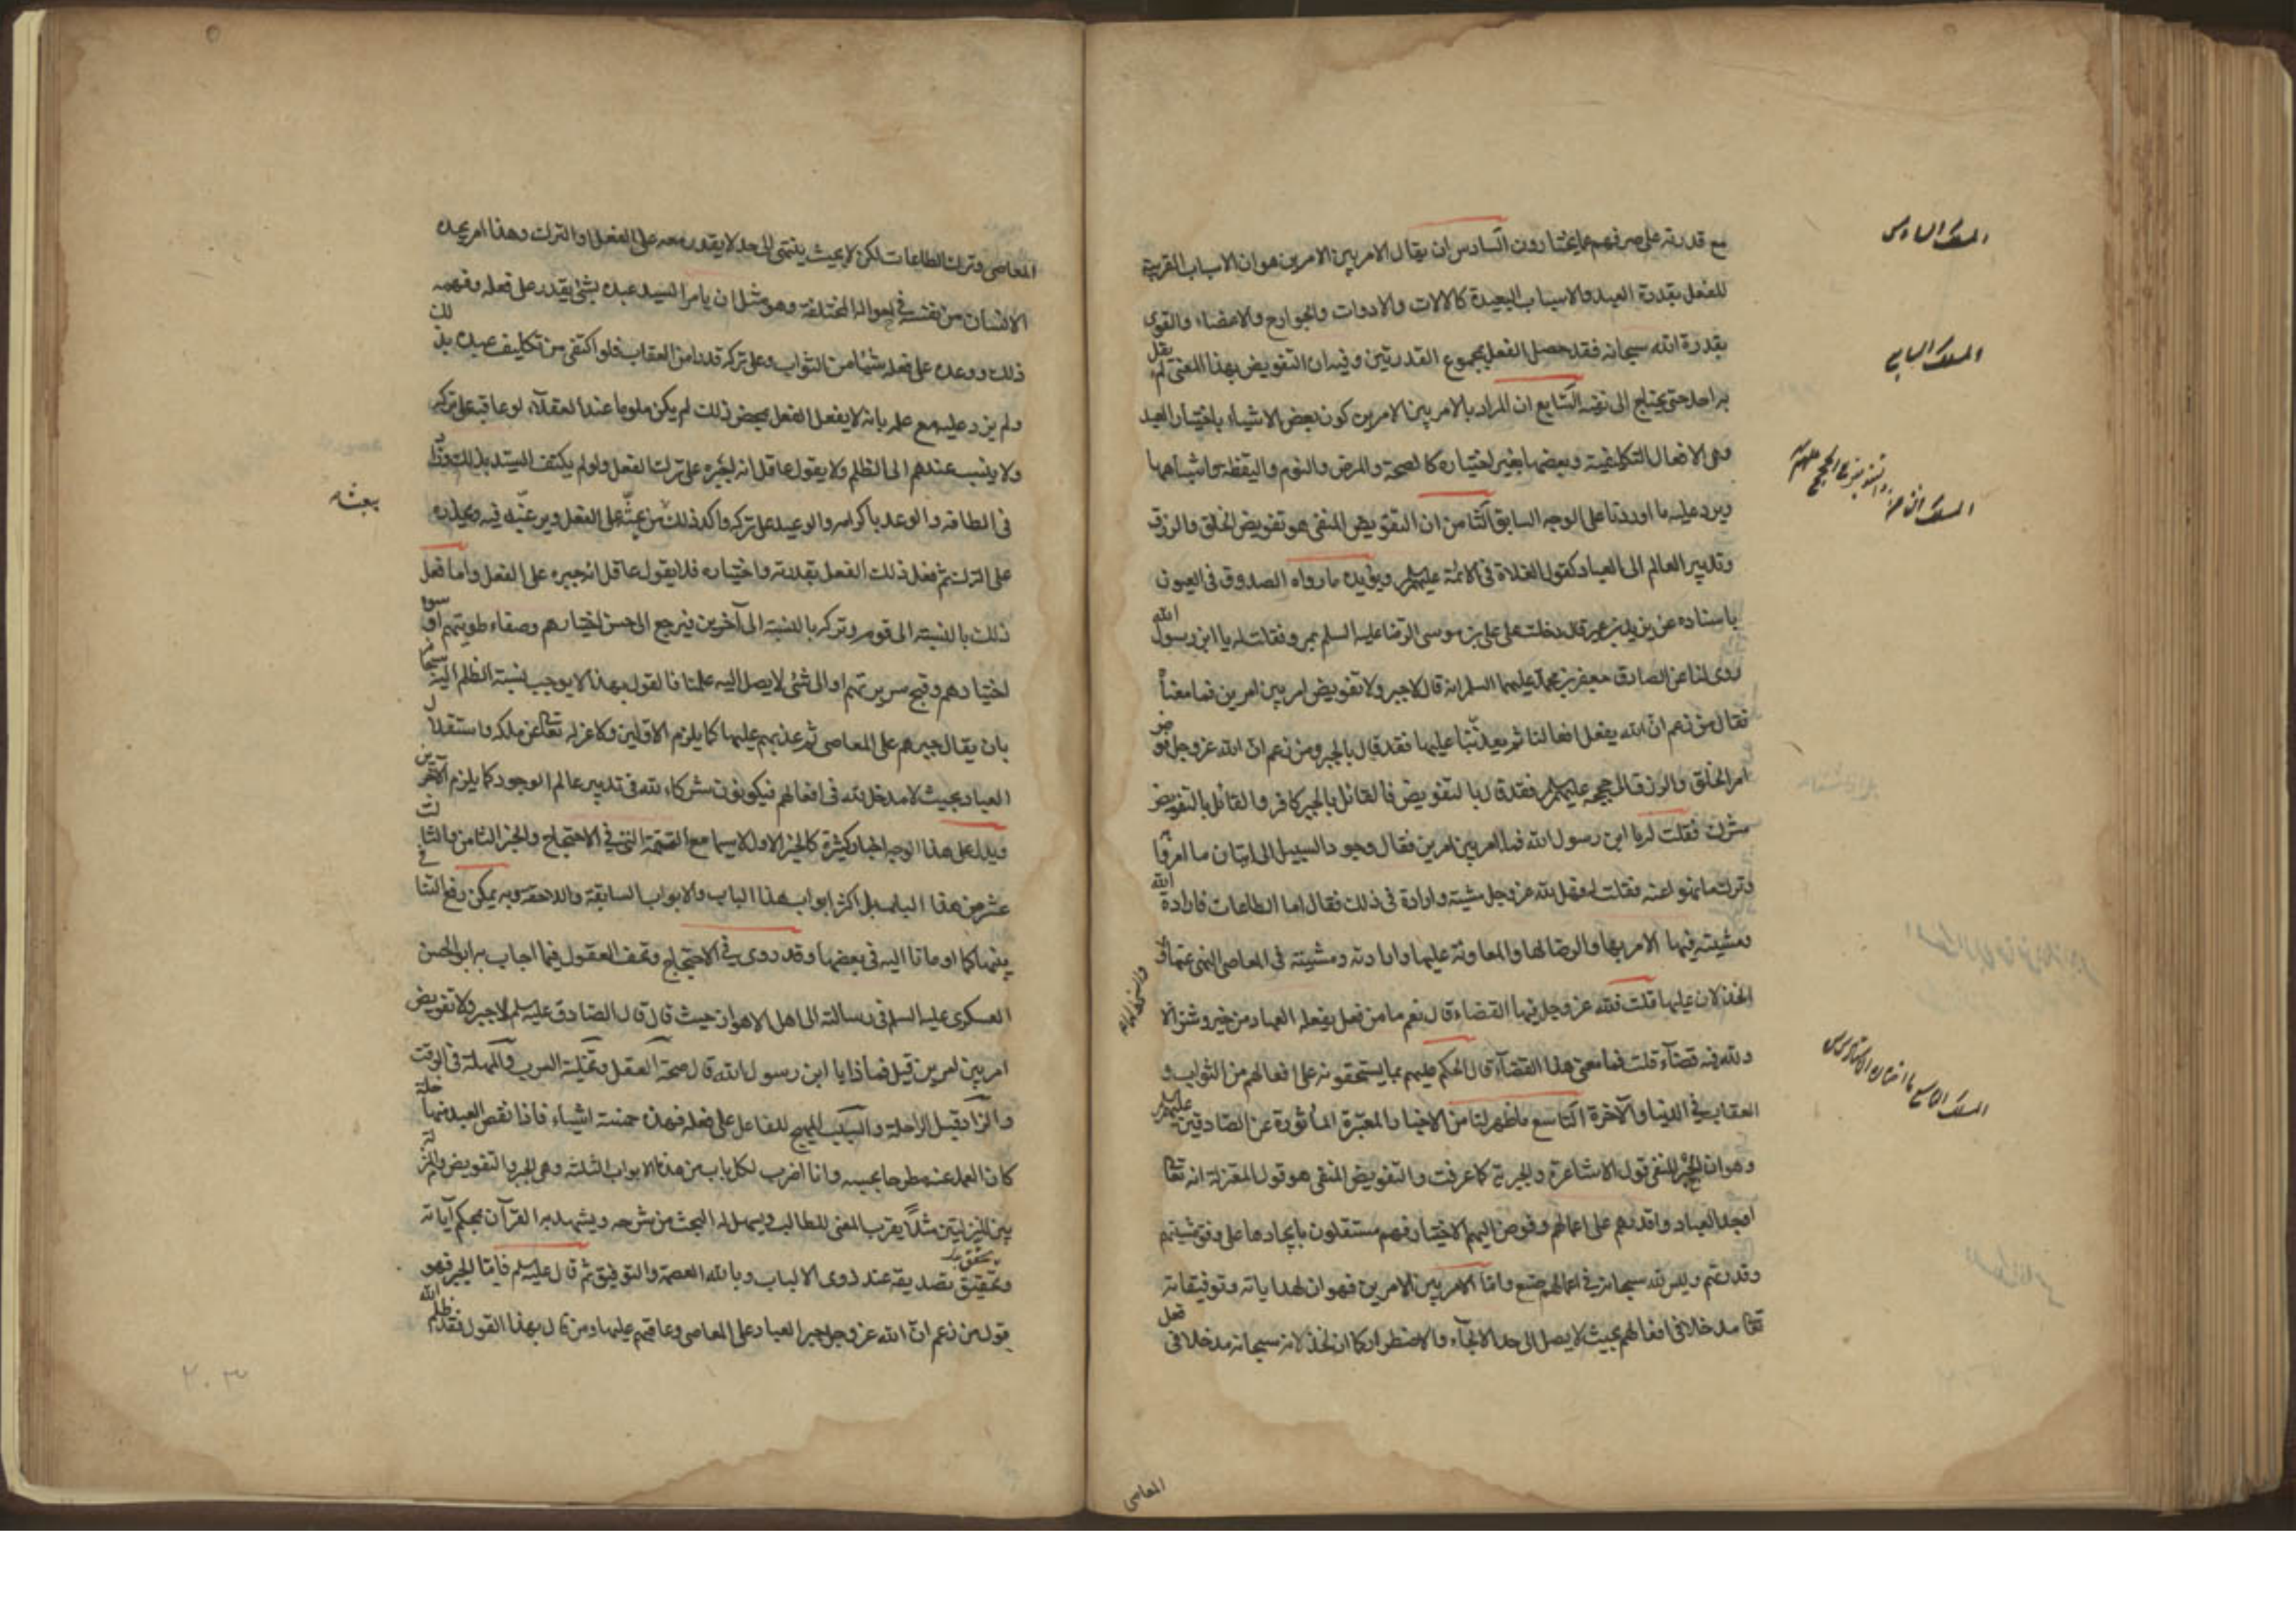 مع قدرته على صرفهم عما يختارون السادس ان يقال الامر بين الامرين هو ان الاسباب القريبة
للفعل بقدرة العبد والاسباب البعيدة كالالات والادوات والجوارح والاعضاء والقوى
بقدرة الله سبحانه فقد حصل الفعل بمجموع القدرتين وفيه ان التفويض بهذا المعنى لم يقل
به احد حتى يحتاج الى نفيه السابع ان المراد بالامر بين الامرين كون بعض الاشياء باختيار العبد
وهى الافعال التكليفية وبعضها بغير اختياره كالصحة والمرض والنوم واليقظة واشباهها
ويرد عليه ما اوردنا على الوجه السابق الثامن ان التفويض المنفى هو تفويض الخلق والرزق
وتدبير العالم الى العباد كقول الغلاة فى الائمة عليهم السلم ويؤيده ما رواه الصدوق فى العيون
باسناده عن يزيد بن عمير قال دخلت على على بن موسى الرضا عليه السلم بمرو فقلت له يا ابن رسول الله
روى لنا عن الصادق جعفر بن محمد عليهما السلم انه قال لا جبر ولا تفويض امر بين امرين فما معناه
فقال من زعم ان الله يفعل افعالنا ثم يعذبنا عليها فقد قال بالجبر ومن زعم ان الله عز وجل فوض
امر الخلق والرزق الى حججه عليهم السلم فقد قال بالتفويض فالقائل بالجبر كافر والقائل بالتفويض
مشرك فقلت له يا ابن رسول الله فما امر بين امرين فقال وجود السبيل الى اتيان ما امروا به
وترك ما نهوا عنه فقلت له فهل لله عز وجل مشية وارادة فى ذلك فقال اما الطاعات فارادة الله
ومشيته فيها الامر بها والرضا لها والمعاونة عليها وارادته ومشيته فى المعاصى النهى عنها و
والسخط لها
الخذلان عليها قلت فلله عز وجل فيها القضاء قال نعم ما من فعل يفعله العباد من خير وشر الا
ولله فيه قضاء قلت فما معنى هذا القضاء قال الحكم عليهم بما يستحقونه على افعالهم من الثواب و
العقاب فى الدنيا والآخرة التاسع ما ظهر لنا من الاخبار المعتبرة المأثورة عن الصادقين عليهم السلم
وهو ان الجبر المنفى قول الاشاعرة والجبرية كما عرفت والتفويض المنفى هو قول المعتزلة انه تعالى
اوجد العباد واقدرهم على اعمالهم وفوض اليهم الاختيار فهم مستقلون بايجادها على وفق مشيتهم
وقدرتهم وليس لله سبحانه فى اعمالهم صنع واما الامر بين الامرين فهو ان لهداياته وتوفيقاته
تعالى مدخلا فى افعالهم بحيث لا يصل الى حد الالجاء والاضطرار كما ان لخذلانه سبحانه مدخلا فى فعل
المعاصى
المسلك السادس
المسلك السابع
المسلك الثامن
المسلك التاسع
المعاصى وترك الطاعات لكن لا بحيث ينتهى الى حد لا يقدر معه على الفعل او الترك وهذا امر يجده
الانسان من نفسه فى احواله المختلفة وهو مثل ان يامر السيد عبده بشئ يقدر على فعله وفهمه
ذلك ووعده على فعله شيئا من الثواب وعلى تركه قدرا من العقاب فلو اكتفى من تكليف عبده بذلك
ولم يزد عليه مع علمه بانه لا يفعل الفعل بمحض ذلك لم يكن ملوما عند العقلاء لو عاقبه على تركه
ولا ينسب عندهم الى الظلم ولا يقول عاقل انه اجبره على ترك الفعل ولو لم يكتف السيد بذلك وزاد
فى الطافه والوعد باكرامه والوعيد على تركه واكد ذلك ببعث من يحثه على الفعل ويرغبه فيه ويحذره
على الترك ثم فعل ذلك الفعل بقدرته واختياره فلا يقول عاقل انه جبره على الفعل واما فعل
ذلك بالنسبة الى قوم وتركه بالنسبة الى آخرين فيرجع الى حسن اختيارهم وصفاء طويتهم او سوء
اختيارهم وقبح سريرتهم او الى شئ لا يصل اليه علمنا فالقول بهذا لا يوجب نسبة الظلم اليه سبحانه
بان يقال جبرهم على المعاصى ثم عذبهم عليها كما يلزم الاولين ولا عزله تعالى عن ملكه واستقلال
العباد بحيث لا مدخل لله فى افعالهم فيكونون شركاء لله فى تدبير عالم الوجود كما يلزم الآخرين
ويدل على هذا الوجه اخبار كثيرة كالخبر الاول لا سيما مع التتمة التى فى الاحتجاج والخبر الثامن والثالث
عشر من هذا الباب بل اكثر ابواب هذا الباب والابواب السابقة واللاحقة وبه يمكن رفع التنافى
بينها كما اومأنا اليه فى بعضها وقد روى فى الاحتجاج وتحف العقول فيما اجاب به ابو الحسن
العسكرى عليه السلم فى رسالته الى اهل الاهواز حيث قال قال الصادق عليه السلم لا جبر ولا تفويض
امر بين امرين قيل فما ذا يا ابن رسول الله قال صحة العقل وتخلية السرب والمهلة فى الوقت
والزاد قبل الراحلة والسبب المهيج للفاعل على فعله فهذه خمسة اشياء فاذا نقص العبد منها خلة
كان العمل عنه مطرحا بحسبه وانا اضرب لكل باب من هذه الابواب الثلثة وهى الجبر والتفويض والمنزلة
بين المنزلتين مثلا يقرب المعنى للطالب ويسهل له البحث من شرحه ويشهد به القرآن بمحكم آياته
وتحقيق تصديقه عند ذوى الالباب وبالله العصمة والتوفيق ثم قال عليه السلم فاما الجبر فهو
قول من زعم ان الله عز وجل اجبر العباد على المعاصى وعاقبهم عليها ومن قال بهذا القول فقد ظلم الله
ببعث
٢٠٣